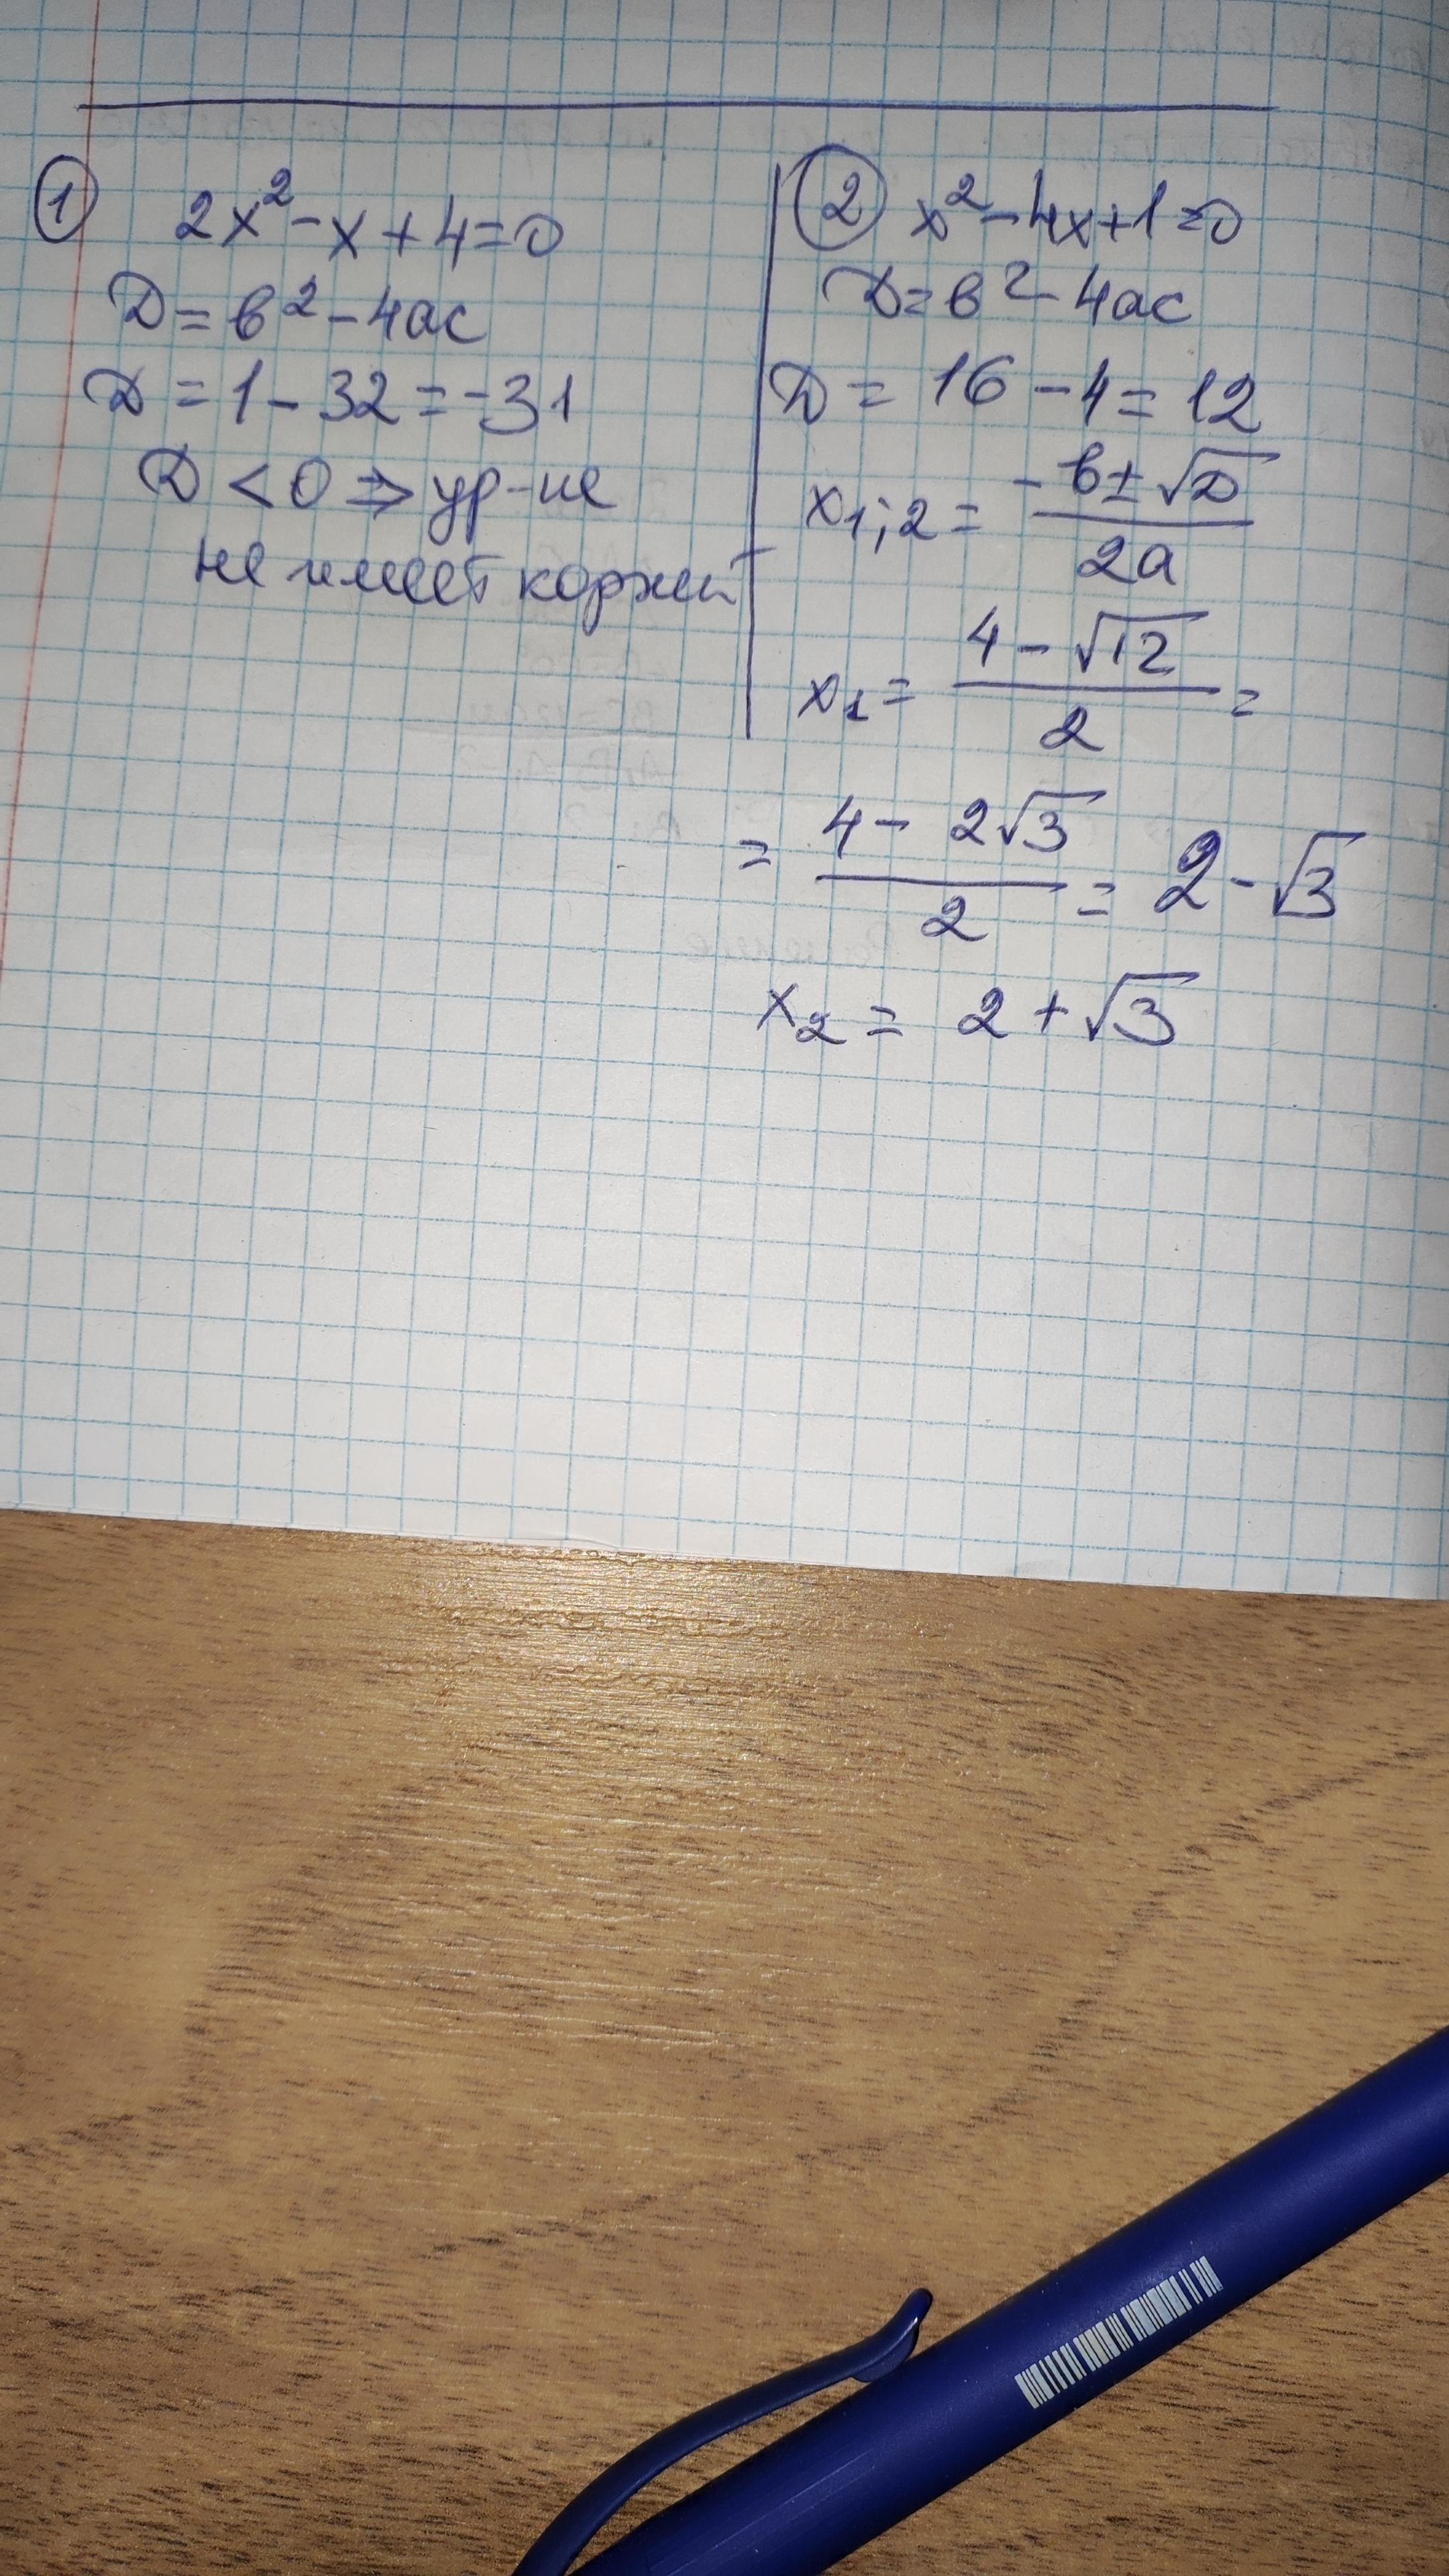 1
2x² - x + 4 = 0
D = в² - 4ac
D = 1 - 32 = -31
D < 0 ⇒ ур-ие
не имеет корней
2
x² - 4x + 1 = 0
D = в² - 4ac
D = 16 - 4 = 12
x₁;₂ = (-в ± √D) / 2a
x₁ = (4 - √12) / 2 =
= (4 - 2√3) / 2 = 2 - √3
x₂ = 2 + √3